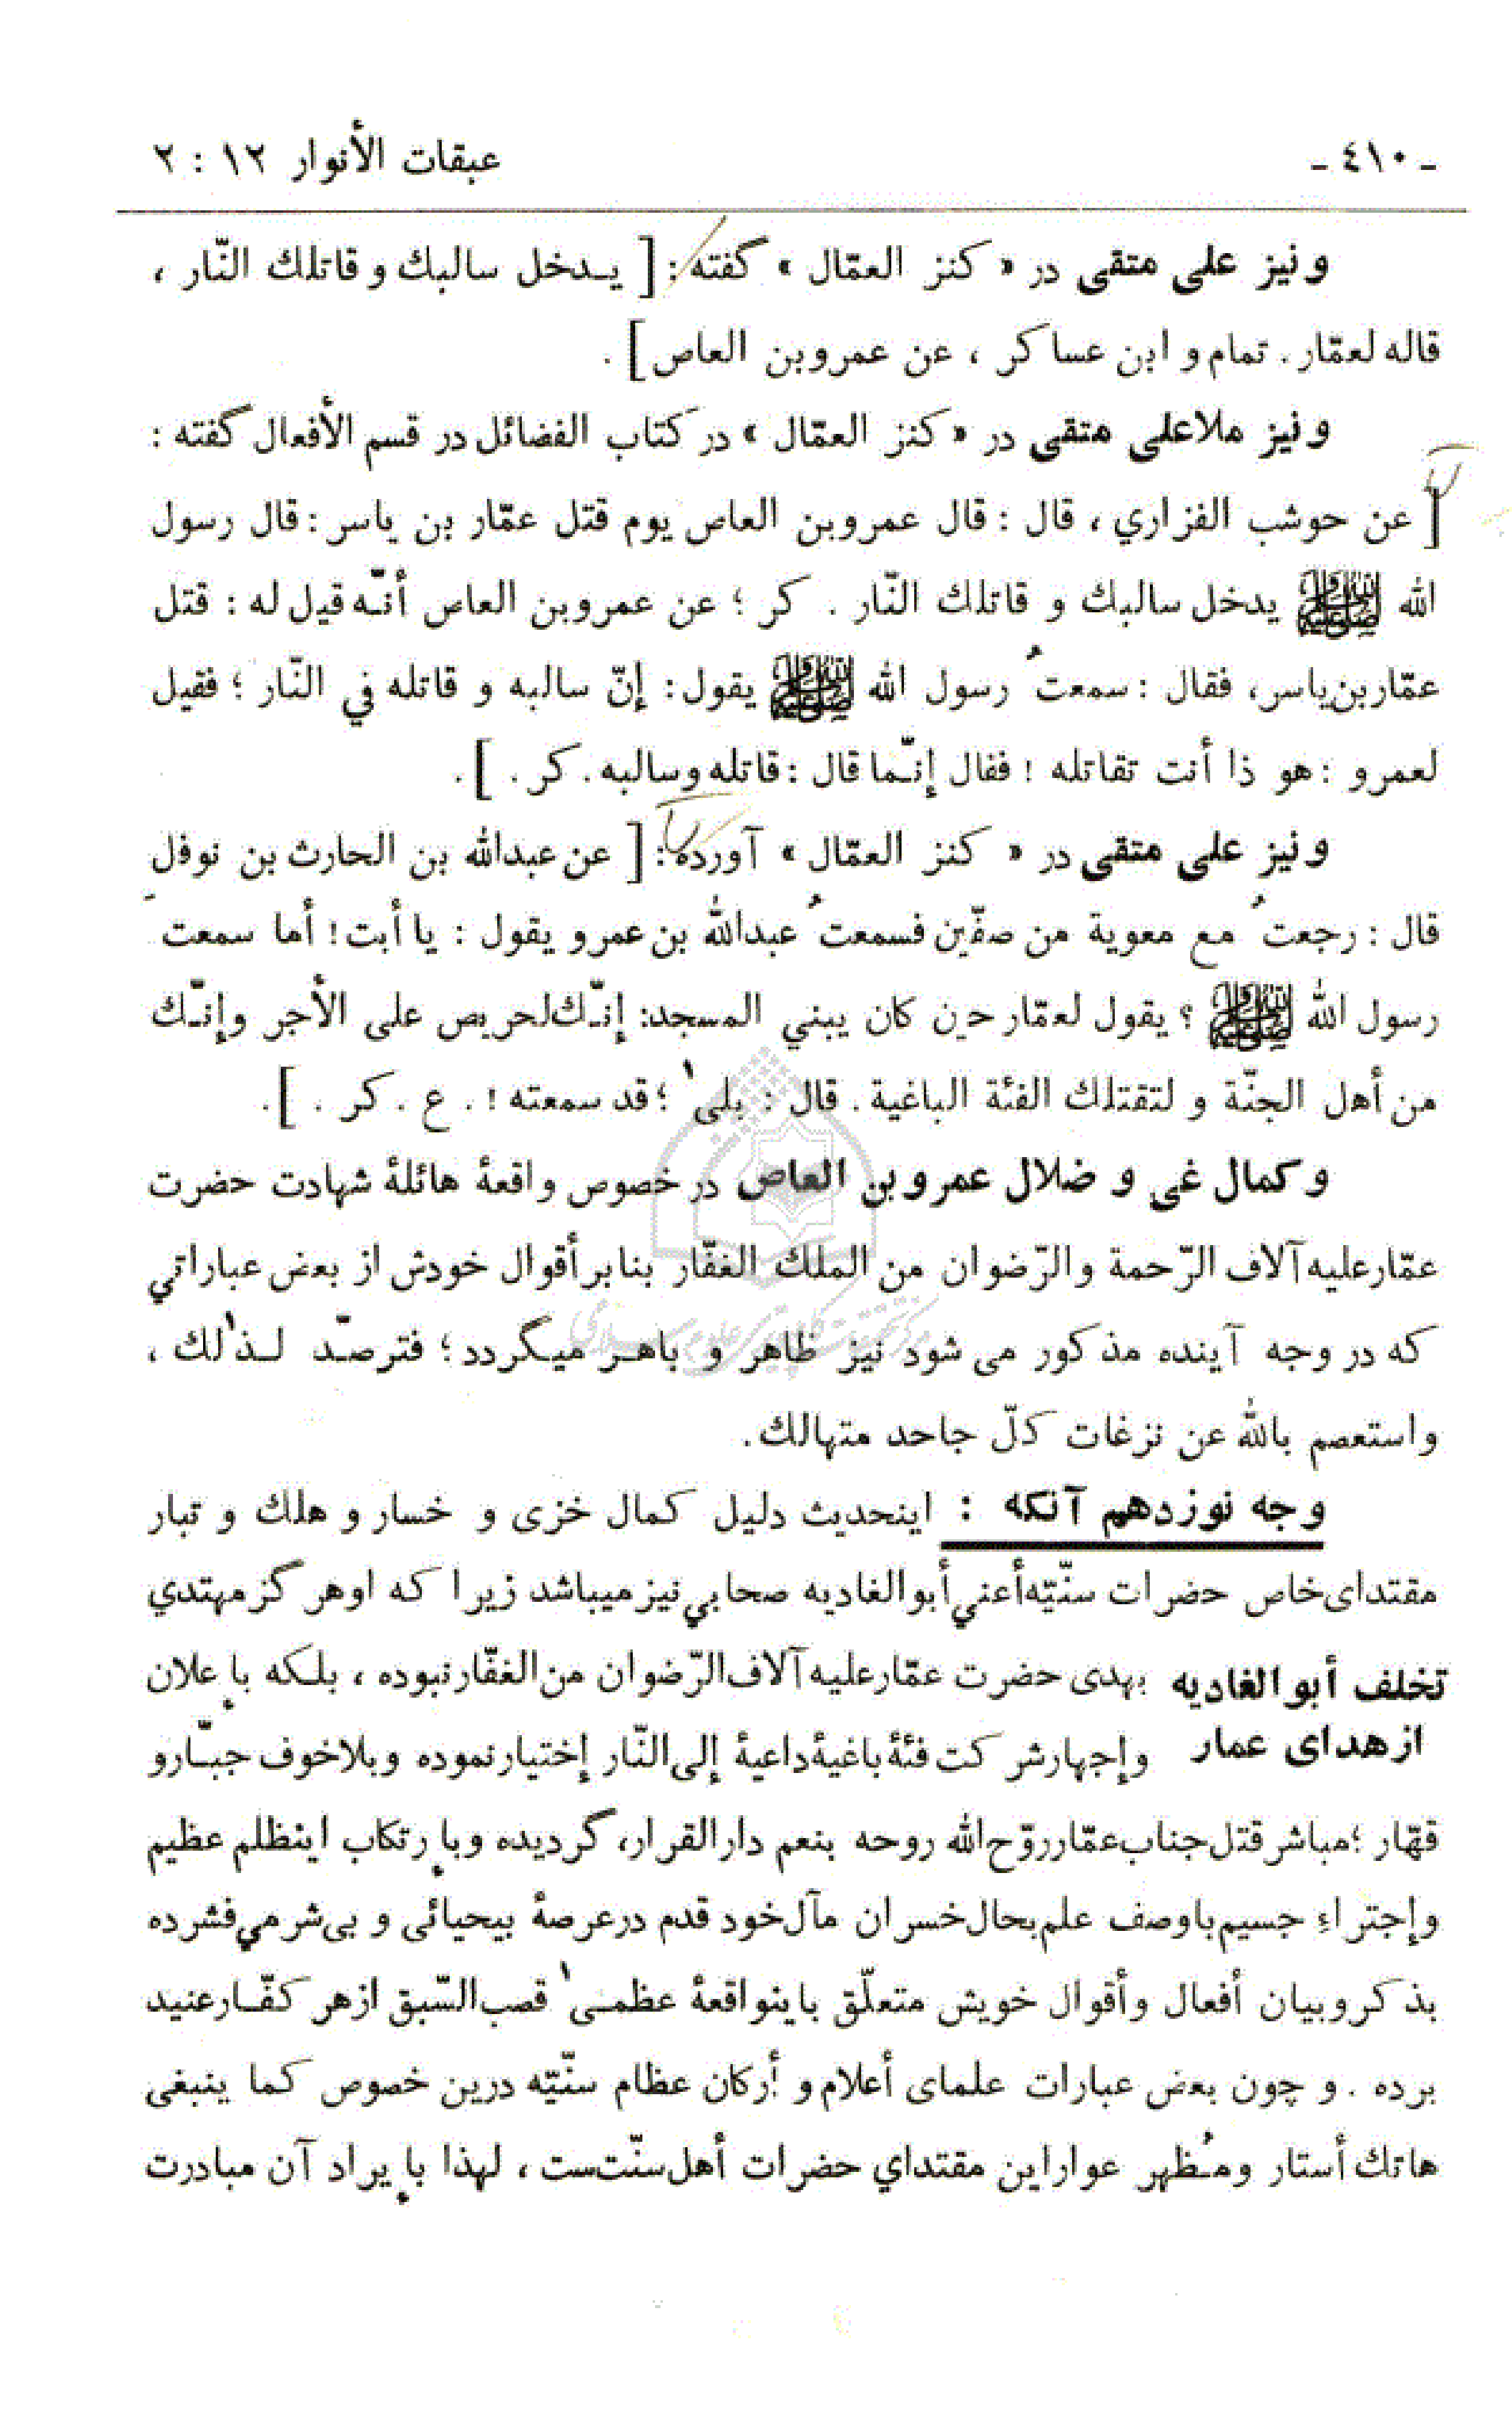 - ٤١٠ -
عبقات الأنوار ١٢ : ٢
و نیز علی متقی در « کنز العمّال » گفته : [ یـدخل سالبك و قاتلك النّار ،
قاله لعمّار . تمام و ابن عساکر ، عن عمروبن العاص ] .
و نیز ملاعلی متقی در « کنز العمّال » در کتاب الفضائل در قسم الأفعال گفته :
[ عن حوشب الفزاري ، قال : قال عمروبن العاص يوم قتل عمّار بن ياسر : قال رسول
الله ﷺ يدخل سالبك و قاتلك النّار . كر ؛ عن عمروبن العاص أنّـه قيل له : قتل
عمّاربن‌ياسر، فقال : سمعتُ رسول الله ﷺ يقول : إنّ سالبه و قاتله في النّار ؛ فقيل
لعمرو : هو ذا أنت تقاتله ! فقال إنّـما قال : قاتله وسالبه . كر . ] .
و نیز علی متقی در « کنز العمّال » آورده : [ عن عبدالله بن الحارث بن نوفل
قال : رجعتُ مع معوية من صفّين فسمعتُ عبدالله بن عمرو يقول : يا أبت ! أما سمعتَ
رسول الله ﷺ ؟ يقول لعمّار حين كان يبني المسجد: إنّـك‌لحريص على الأجر وإنّـك
من أهل الجنّة و لتقتلك الفئة الباغية . قال : بلىٰ ؛ قد سمعته ! . ع . كر . ] .
و کمال غی و ضلال عمروبن العاص در خصوص واقعهٔ هائلهٔ شهادت حضرت
عمّارعلیه آلاف الرّحمة والرّضوان من الملك الغفّار بنابر أقوال خودش از بعض عباراتي
که در وجه آینده مذکور می شود نیز ظاهر و باهـر میگردد ؛ فترصّـد لـذٰلك ،
واستعصم بالله عن نزغات كلّ جاحد متهالك.
وجه نوزدهم آنکه : اینحدیث دلیل کمال خزی و خسار و هلك و تبار
مقتدای‌خاص حضرات سنّیّه‌أعني‌أبوالغادیه صحابي‌نیزمیباشد زیرا که اوهرگز مهتدي
تخلف أبوالغادیه
از هدای عمار
بهدی حضرت عمّارعلیه آلاف‌الرّضوان من‌الغفّارنبوده ، بلـکه بإعلان
وإجهارشرکت فئهٔ باغیهٔ داعیهٔ إلی‌النّار إختیارنموده وبلاخوف جبّـارو
قهّار ؛مباشرقتل‌جناب‌عمّارروّح‌الله روحه بنعم دارالقرار، گردیده وبإرتکاب اینظلم عظیم
وإجتراءِ جسیم‌باوصف علم‌بحال‌خسران مآل‌خود قدم درعرصهٔ بیحیائی و بی‌شرمي‌فشرده
بذکروبیان أفعال وأقوال خویش متعلّق باینواقعهٔ عظمـیٰ قصب‌السّبق ازهرکفّـارعنید
برده . و چون بعض عبارات علمای أعلام و أرکان عظام سنّیّه درین خصوص کما ینبغی
هاتك أستار ومُـظهر عواراین مقتداي حضرات أهل‌سنّت‌ست ، لهذا بإیراد آن مبادرت